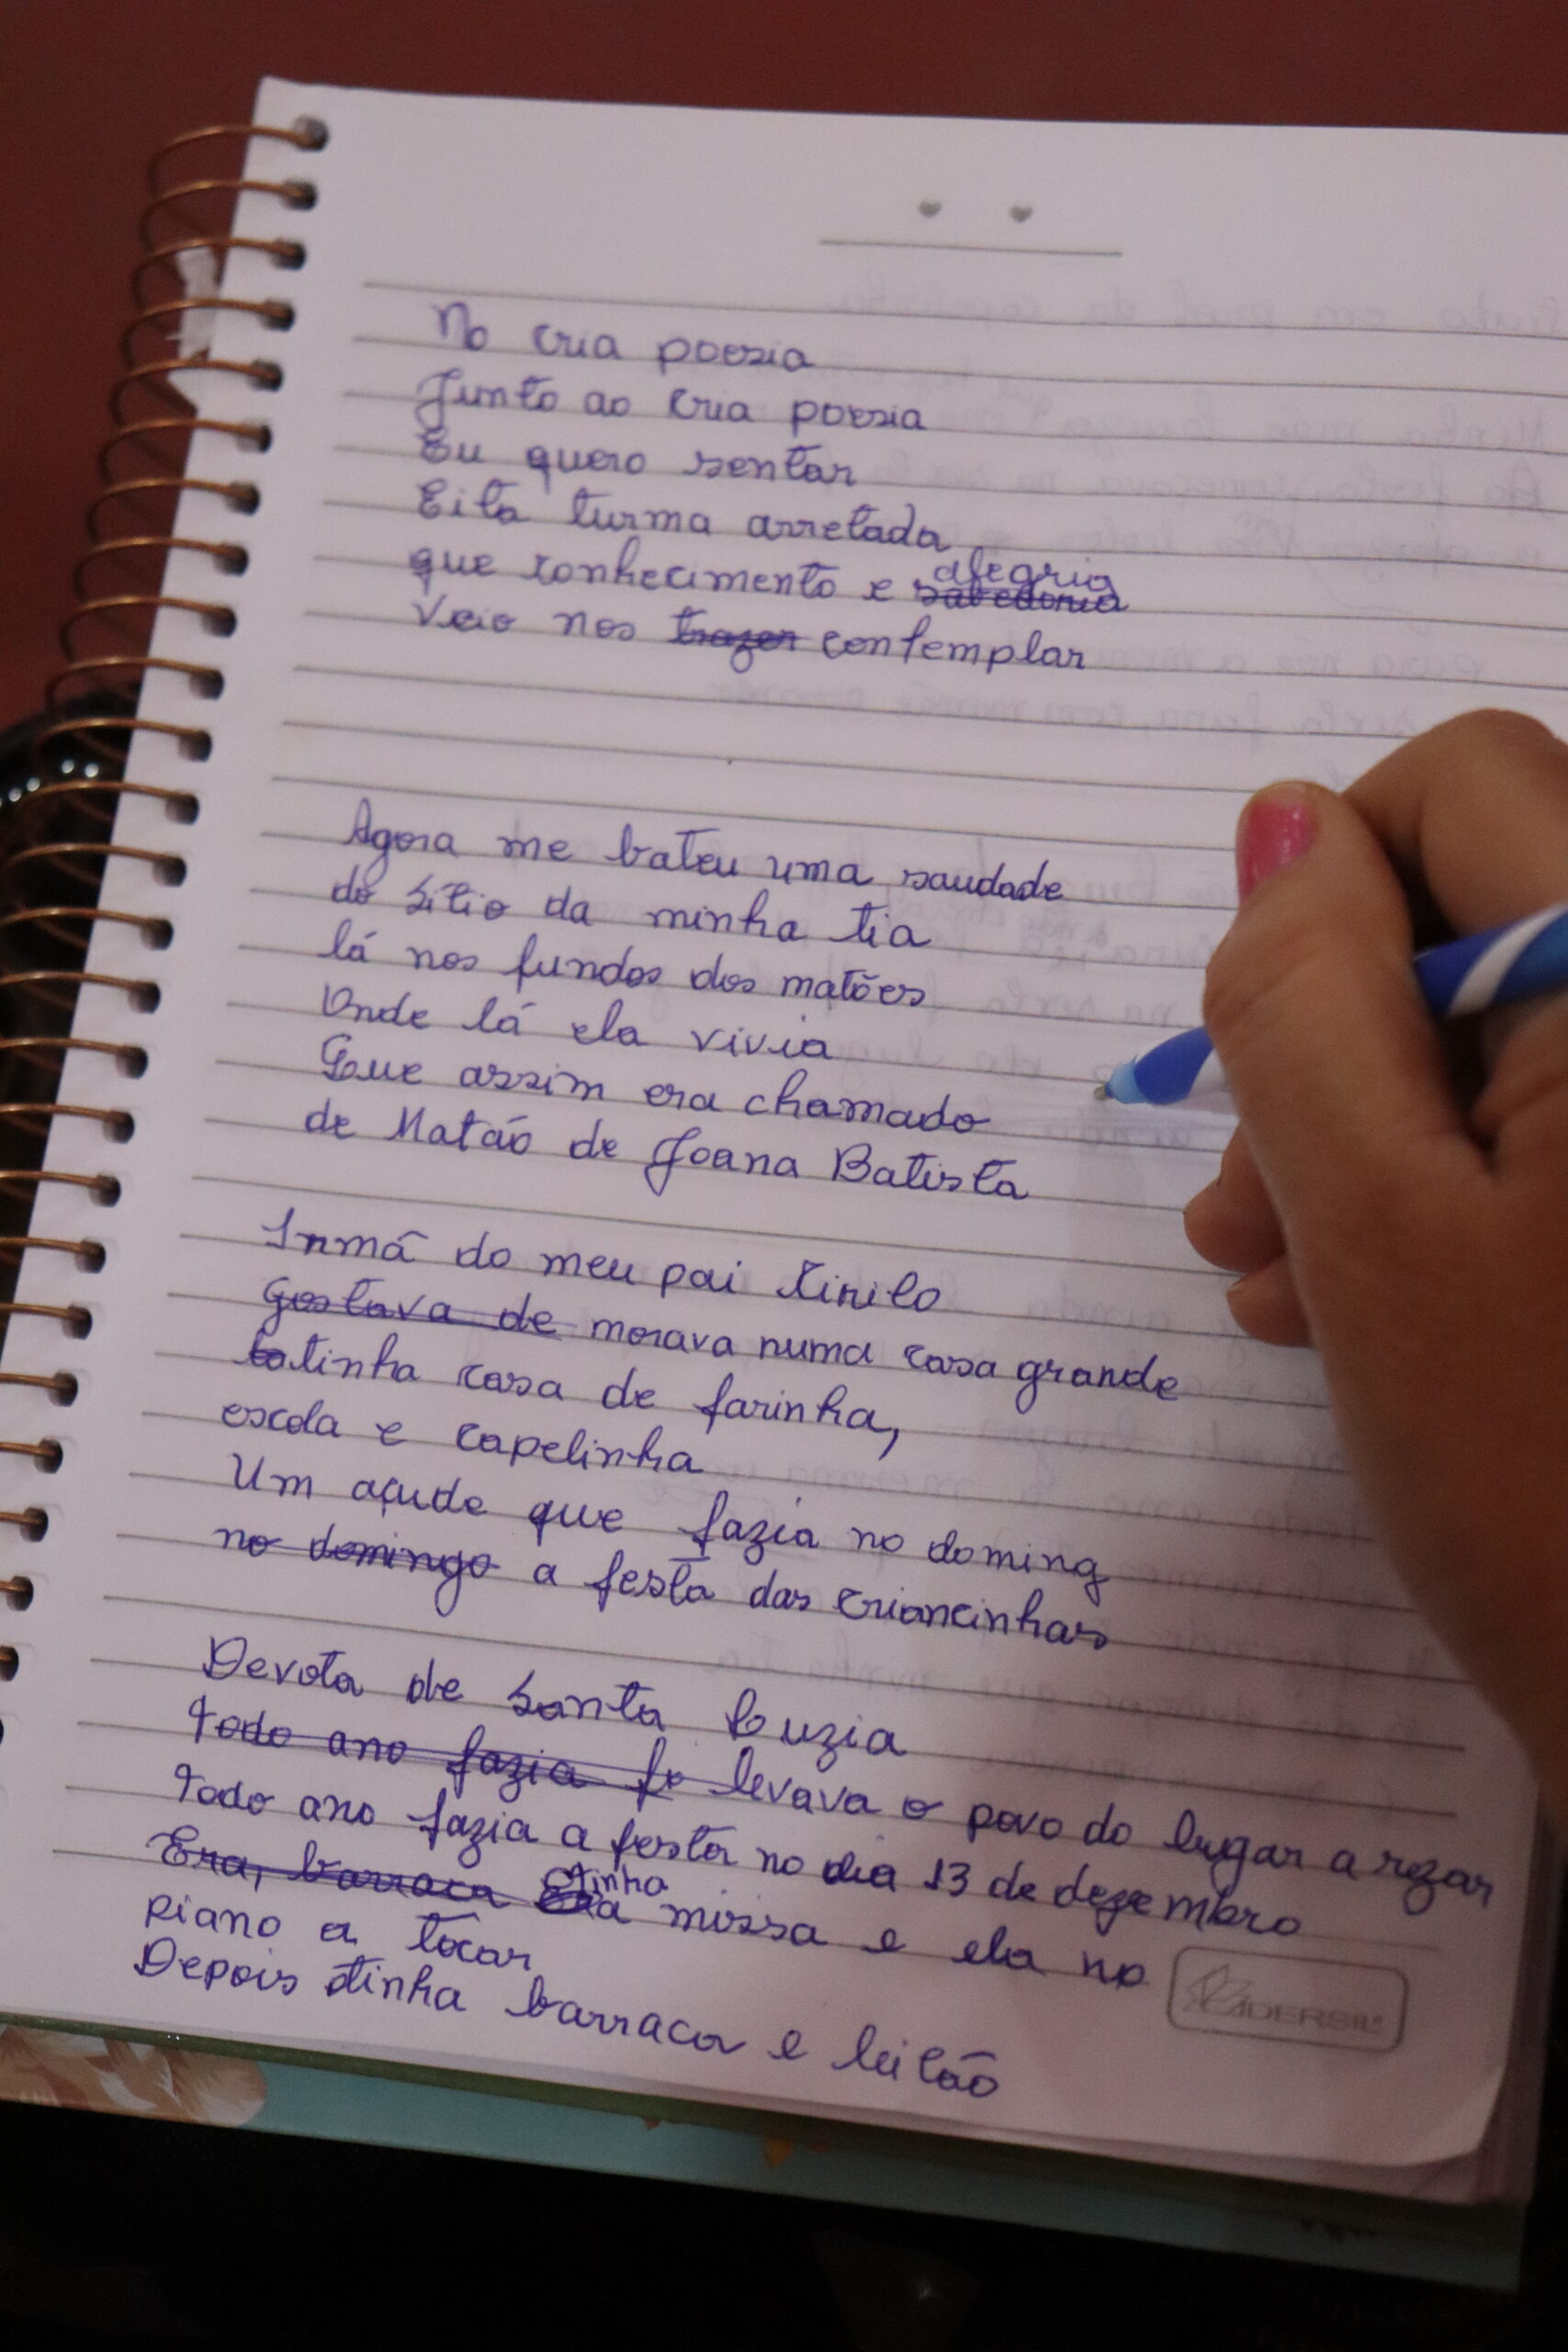 No cria poesia
Junto ao cria poesia
Eu quero sentar
Eita turma arretada
que conhecimento e sabedoria alegria
Veio nos trazer contemplar
Agora me bateu uma saudade
do sitio da minha tia
lá nos fundos dos matões
Onde lá ela vivia
Que assim era chamado
de Matão de Joana Batista
Inmã do meu pai Cirilo
Gostava de morava numa casa grande
tinha casa de farinha,
escola e capelinha
Um açude que fazia no doming
no domingo a festa das criancinhas
Devota de Santa Luzia
Todo ano fazia fe levava o povo do lugar a rezar
Todo ano fazia a festa no dia 13 de dezembro
Era, barraca tinha a missa e ela no
piano a tocar
Depois tinha barraca e leilão